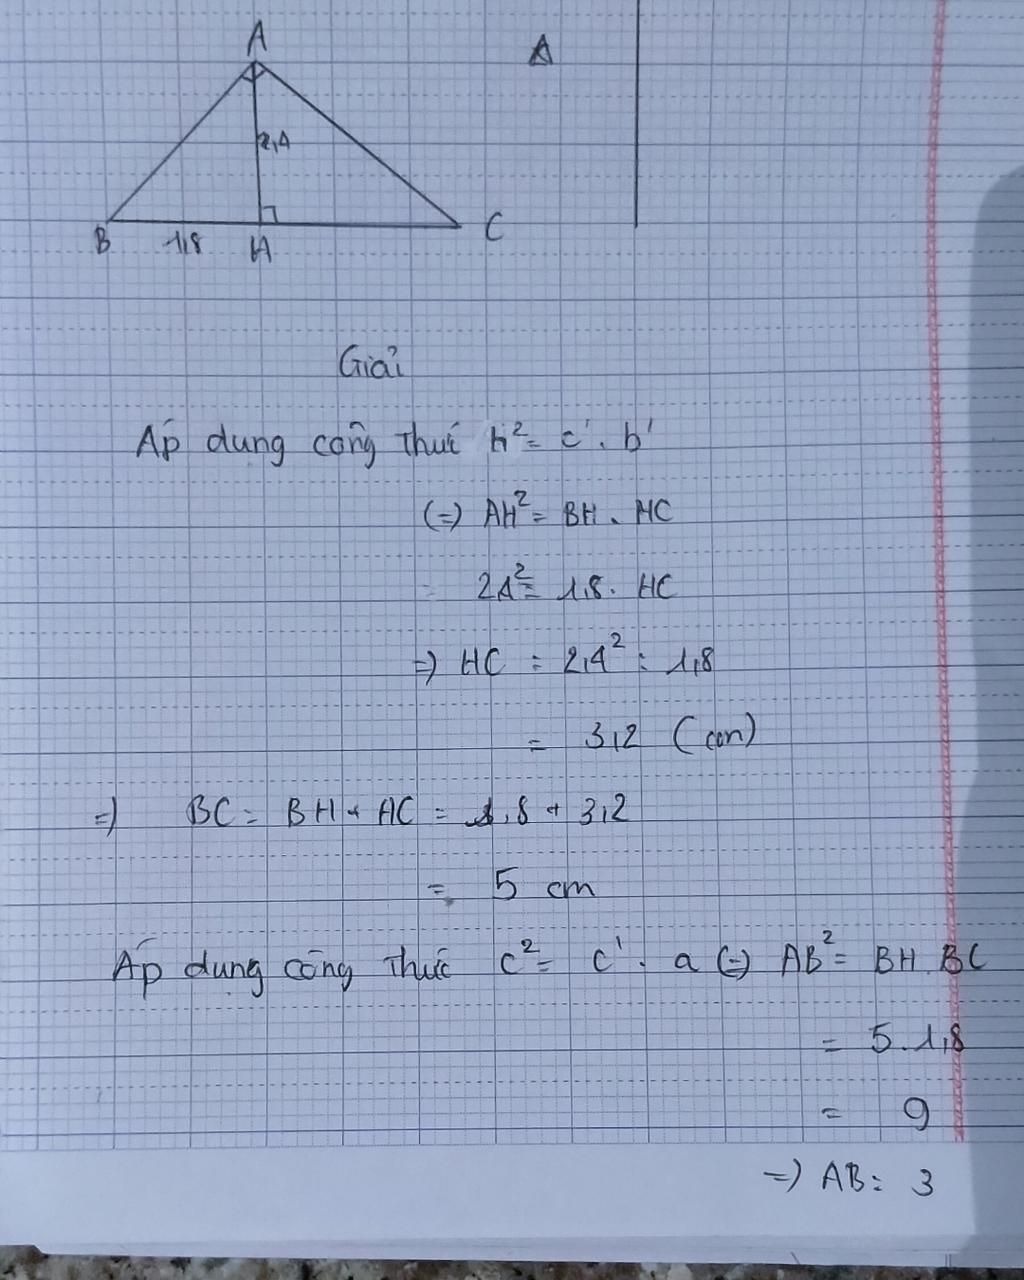 A
A
2,4
B 1,8 H C
Giải
Áp dung công thưć h² = c'. b'
(=) AH² = BH. HC
2,4² = 1,8. HC
=) HC = 2,4² : 1,8
= 3,2 (cm)
=) BC = BH + HC = 1,8 + 3,2
= 5 cm
Áp dung công thưć c² = c'. a (=) AB² = BH. BC
= 5.1,8
= 9
=) AB = 3